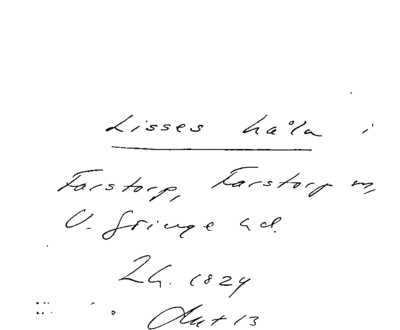 Lisses håla i
Farstorp, Farstorp sn,
V. Göinge hd.
Lh. 1824
Ant 13